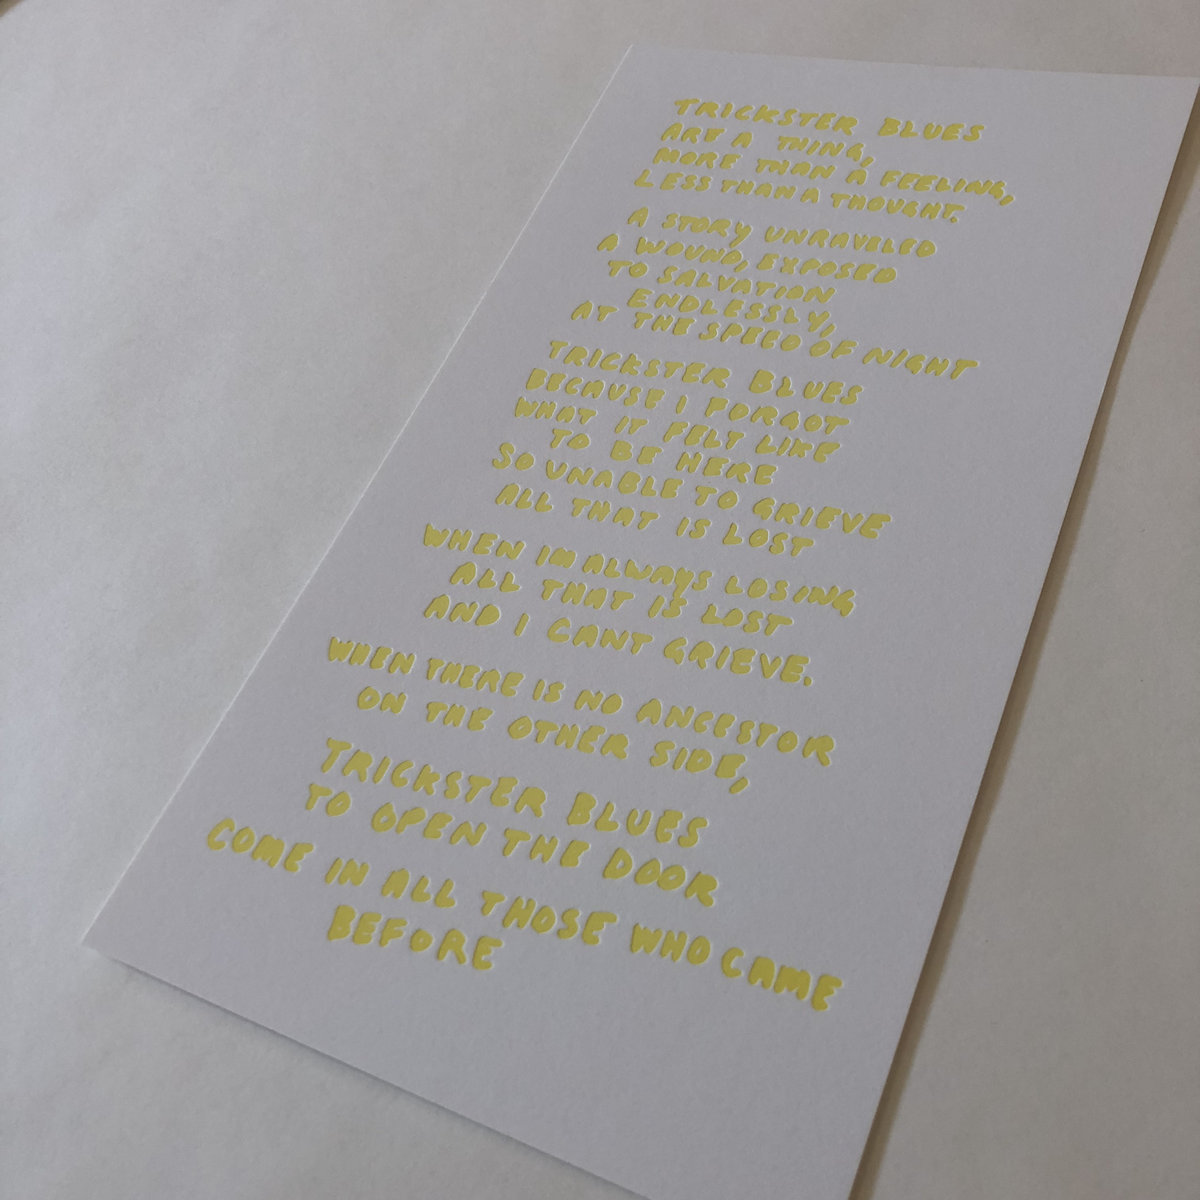 TRICKSTER BLUES
ARE A THING,
MORE THAN A FEELING,
LESS THAN A THOUGHT.
A STORY UNRAVELED
A WOUND, EXPOSED
TO SALVATION
ENDLESSLY,
AT THE SPEED OF NIGHT
TRICKSTER BLUES
BECAUSE I FORGOT
WHAT IT FELT LIKE
TO BE HERE
SO UNABLE TO GRIEVE
ALL THAT IS LOST
WHEN IM ALWAYS LOSING
ALL THAT IS LOST
AND I CANT GRIEVE.
WHEN THERE IS NO ANCESTOR
ON THE OTHER SIDE,
TRICKSTER BLUES
TO OPEN THE DOOR
COME IN ALL THOSE WHO CAME
BEFORE